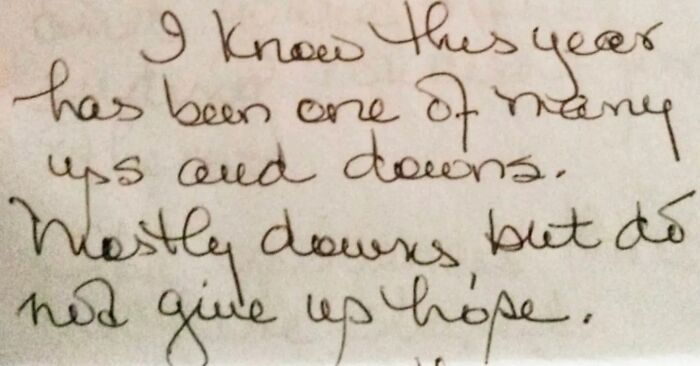 I know this year
has been one of many
ups and downs.
Mostly downs, but do
not give up hope.